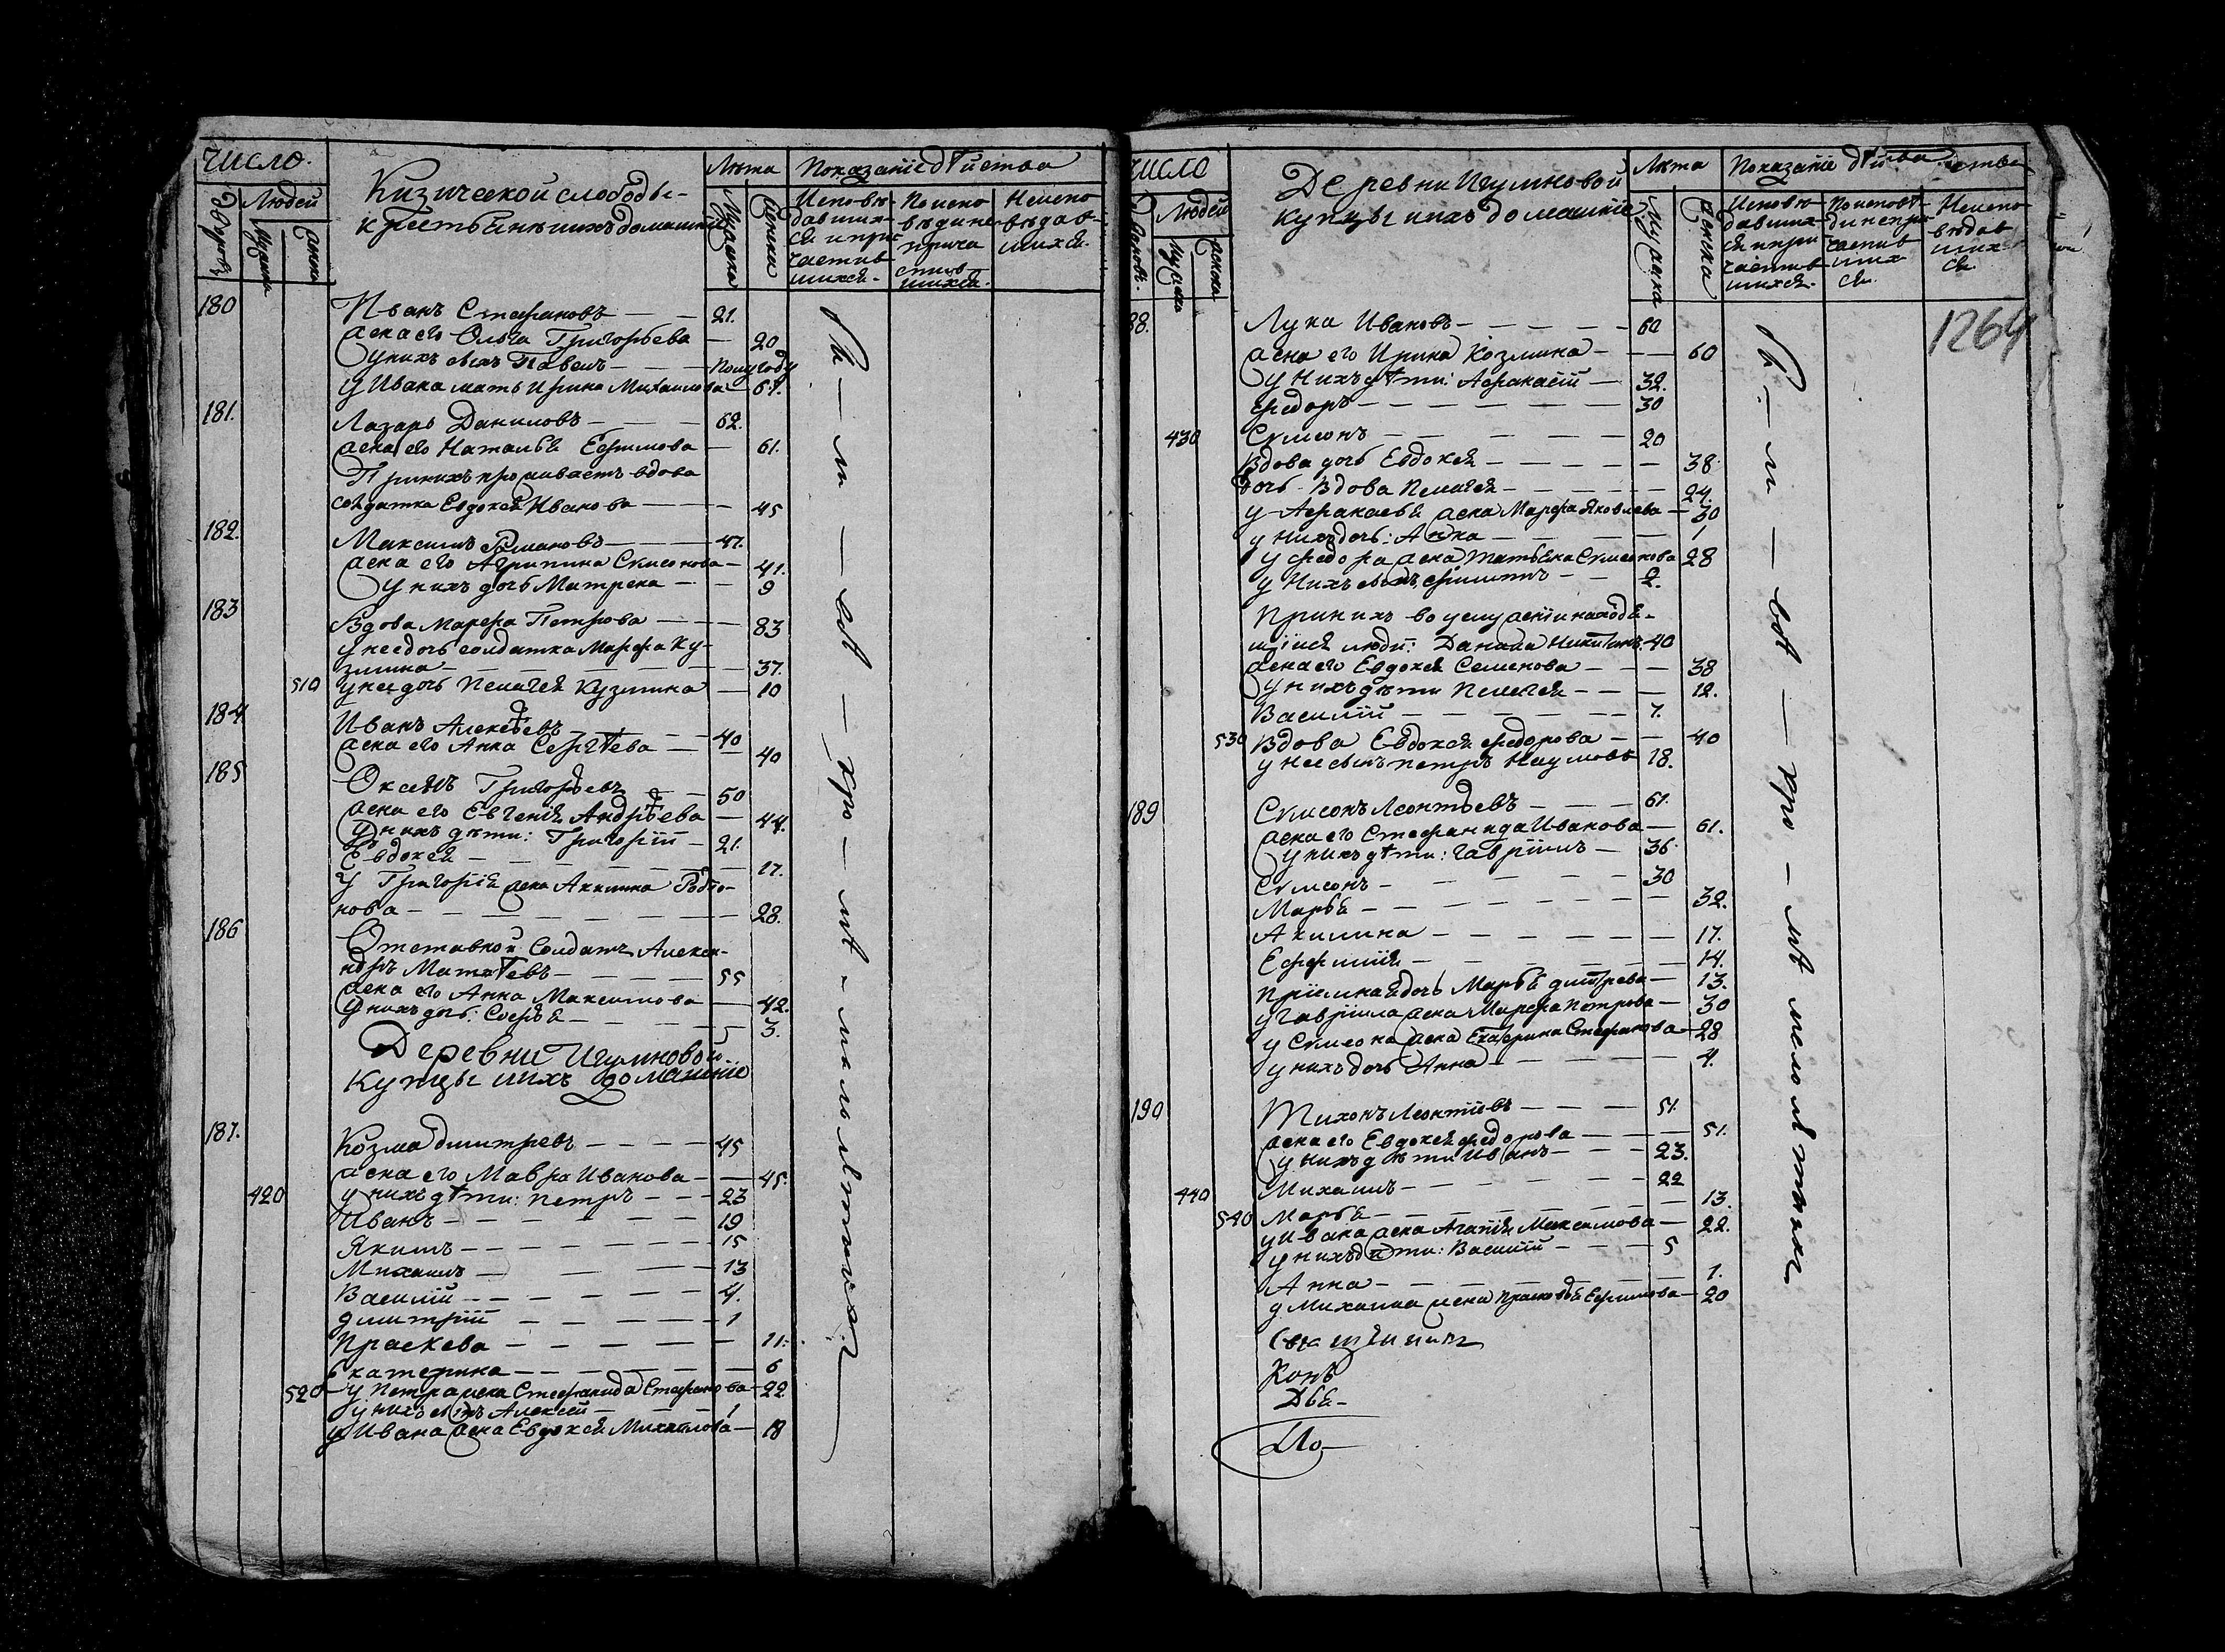 Число.
Дворовъ
Людей
Мужеска
Женска
Кизической слободы
крестьянъ и ихъ домашнiе
Лѣта
Мужеска
Женска
Показанiе дѣйства
Исповѣ-
давших-
ся и при-
частив-
шихся.
По испо-
вѣди не-
прича
стив
шихся.
Неиспо
вѣдав-
шихся.
180 Иванъ Стефановъ — — 21.
жена его Ольга Григорьева — 20
у нихъ сынъ Павелъ — — — полугоду
у Ивана мать Ирина Михаилова — 61.
181. Лазарь Даниловъ — — — 62.
жена его Наталья Ефимова — 61.
При нихъ проживаетъ вдова
солдатка Евдокея Иванова — — — 45
182. Максимъ Романовъ — — — 47.
жена его Агрипина Сумеонова — 41.
у нихъ дочь Матрена — — 9
183 Вдова Марфа Петрова — — — 83
у нее дочь солдатка Марфа Ку-
змина — — — — — — — 37.
510 у нее дочь Пелагея Кузмина — 10
184 Иванъ Алексѣевъ — — — 40
жена его Анна Сергѣева — — 40
185 Григорьевъ — — 50
жена его Евгенiя Андрѣева — 44.
у нихъ дѣти: Григорiй — 21.
Евдокея — — — — — — 17.
У Григорiя жена Акилина Родiо-
нова — — — — — — — — 28.
186 Отставной Солдатъ Алекса-
ндръ Матвѣевъ — — — — — 55
жена его Анна Максимова — 42.
у нихъ дочь: Софья — — — — — 3.
Деревни Игумновой
Купцы и ихъ домашнiе
187. Козма Дмитревъ — — — — 45
жена его Мавра Иванова — — 45.
420 у нихъ дѣти: Петръ — — — 23
Иванъ — — — — — — — 19
Якимъ — — — — — — — 15
Михаилъ — — — — — 13
Василiй — — — — — — 4.
Дмитрiй — — — — — 1
Праскева — — — — — — 11.
Екатерина — — — — — — — 6
520 У Петра жена Стефанида Стефанова — 22
у нихъ сынъ Алексѣй — — — — 1
у Ивана жена Евдокея Михаилова — 18
Число
Людей
Мужеска
Женска
Деревни Игумновой
купцы и ихъ домашнiе
Лѣта
Мужеска
Женска
Показанiе дѣйства
Исповѣ-
давших-
ся и при
частив-
шихся.
По исповѣ-
ди непри
частив
ших
ся.
Неиспо
вѣдав
ших
ся.
1264
88. Лука Ивановъ — — — — — 60
жена его Ирина Козмина — — — 60
у нихъ дѣти: Афанасiй — 32.
Федоръ — — — — — — — 30
430 Сумеонъ — — — — — — 20
Вдова дочь Евдокея — — — — — 38.
дочь Вдова Пелагея — — — — — — 24.
у Афанасья жена Марфа Яковлева — 30
у нихъ дочь: Анна — — — — — — 1
У Федора жена Татьяна Сумеонова 28
у Нихъ сынъ Филипъ — — 2.
При нихъ во услуженiи находя-
щiися люди: Данила Никитинъ. 40
жена его Евдокея Семенова — — — 38
у нихъ дѣти Пелагея — — — 12.
Василiй — — — — — — — 7.
530 Вдова Евдокея Федорова — — 40
у нее сынъ Петръ Наумовъ 18.
189 Сумеонъ Леонтьевъ — — — 61.
жена его Стефанида Иванова — 61.
у нихъ дѣти: Гаврiилъ — 36
Сумеонъ — — — — — — 30
Марья — — — — — — — — 32.
Акилина — — — — — — 17.
Ефимiя — — — — — — — 14.
Прiимная дочь Марья Дмитрева — 13.
у Гаврiила жена Марфа Петрова — 30
у Сумеона жена Екатерина Стефанова — 28
у нихъ дочь Анна — — — — — — 4.
190 Тихонъ Леонтiевъ — — — — 51.
жена его Евдокея Федорова — — — — 51.
у нихъ дѣти Иванъ — — — 23.
440 Михаилъ — — — — — — — 22
540 Марья — — — — — — — — 13.
у Ивана жена Агапiя Максимова — 22.
у нихъ дѣти: Василiй — — — — 5
Анна — — — — — — — — 1.
у Михаила жена Прасковья Ефимова — 20
Священникъ